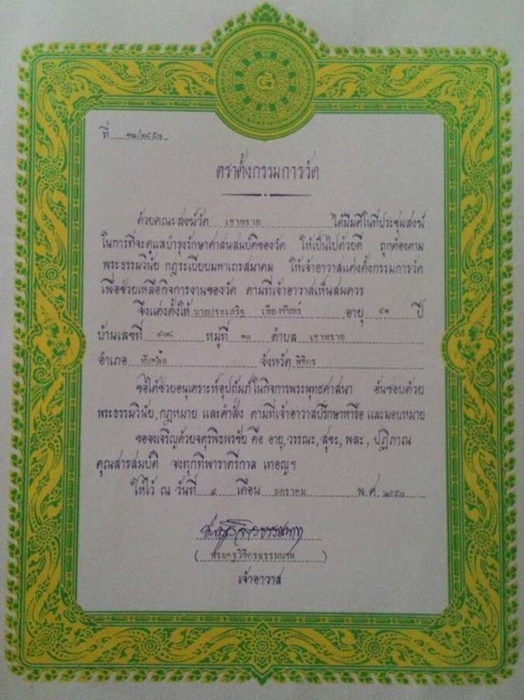 ที่ ๑๒/๒๕๕๑
ตราตั้งกรรมการวัด
ด้วยคณะสงฆ์วัด เขาทราย ได้มีมติในที่ประชุมสงฆ์
ในการที่จะดูแลบำรุงรักษาศาสนสมบัติของวัด ให้เป็นไปด้วยดี ถูกต้องตาม
พระธรรมวินัย กฎระเบียบมหาเถรสมาคม ให้เจ้าอาวาสแต่งตั้งกรรมการวัด
เพื่อช่วยเหลือกิจการงานของวัด ตามที่เจ้าอาวาสเห็นสมควร
จึงแต่งตั้งให้ นายประเสริฐ อายุ ปี
บ้านเลขที่ หมู่ที่ ๑๐ ตำบล เขาทราย
อำเภอ ทับคล้อ จังหวัด พิจิตร
ขอได้ช่วยอนุเคราะห์อุปถัมภ์ในกิจการพระพุทธศาสนา อันชอบด้วย
พระธรรมวินัย, กฎหมาย และคำสั่ง ตามที่เจ้าอาวาสปรึกษาหารือ และมอบหมาย
ขอจงเจริญด้วยจตุรพิธพรชัย คือ อายุ, วรรณะ, สุขะ, พละ, ปฏิภาณ
คุณสารสมบัติ จงทุกทิพาราตรีกาล เทอญฯ
ให้ไว้ ณ วันที่ เดือน มกราคม พ.ศ. ๒๕๕๑
เจ้าอาวาส